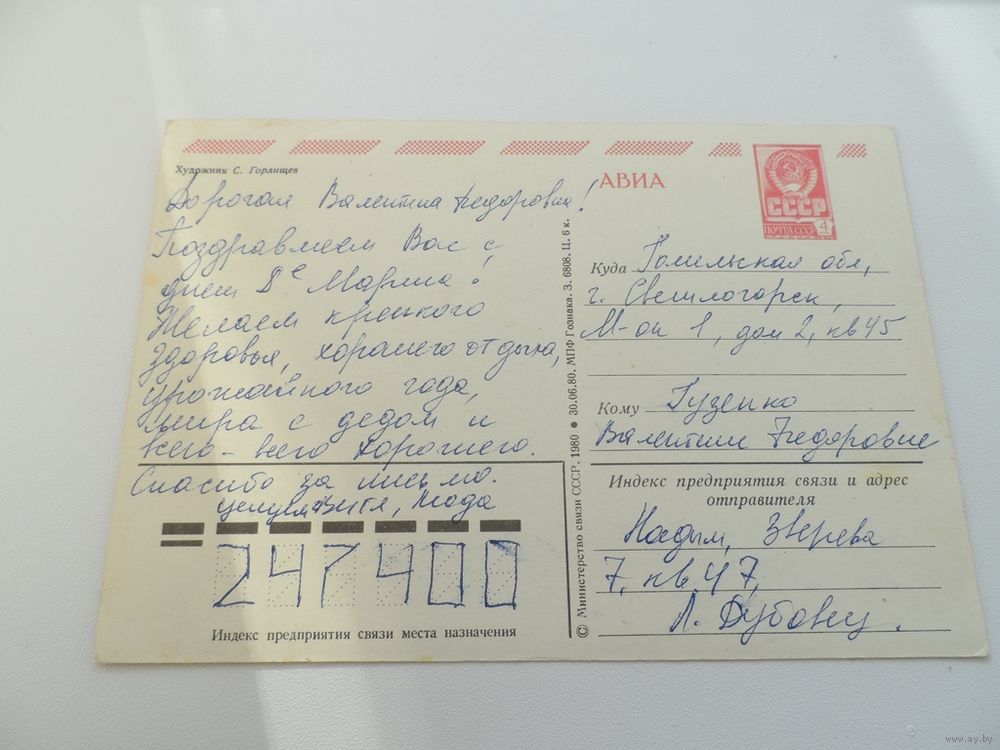 Художник С. Горлищев
Дорогая Валентина Федоровна!
Поздравляем Вас с
днем 8е Марта!
Желаем крепкого
здоровья, хорошего отдыха,
урожайного года,
мира с дедом и
всего-всего хорошего.
Спасибо за письмо.
целуем Витя, Люда
247400
Индекс предприятия связи места назначения
© Министерство связи СССР. 1980 ● 30.06.80. МПФ Гознака. З. 6808. Ц. 6 к.
АВИА
СССР
ПОЧТА СССР 4
Куда Гомельская обл,
г. Светлогорск,
М-он 1, дом 2, кв 45
Кому Гузенко
Валентине Федоровне
Индекс предприятия связи и адрес
отправителя
Надым, Зверева
7, кв 47,
Л. Дубовец.
www.ay.by